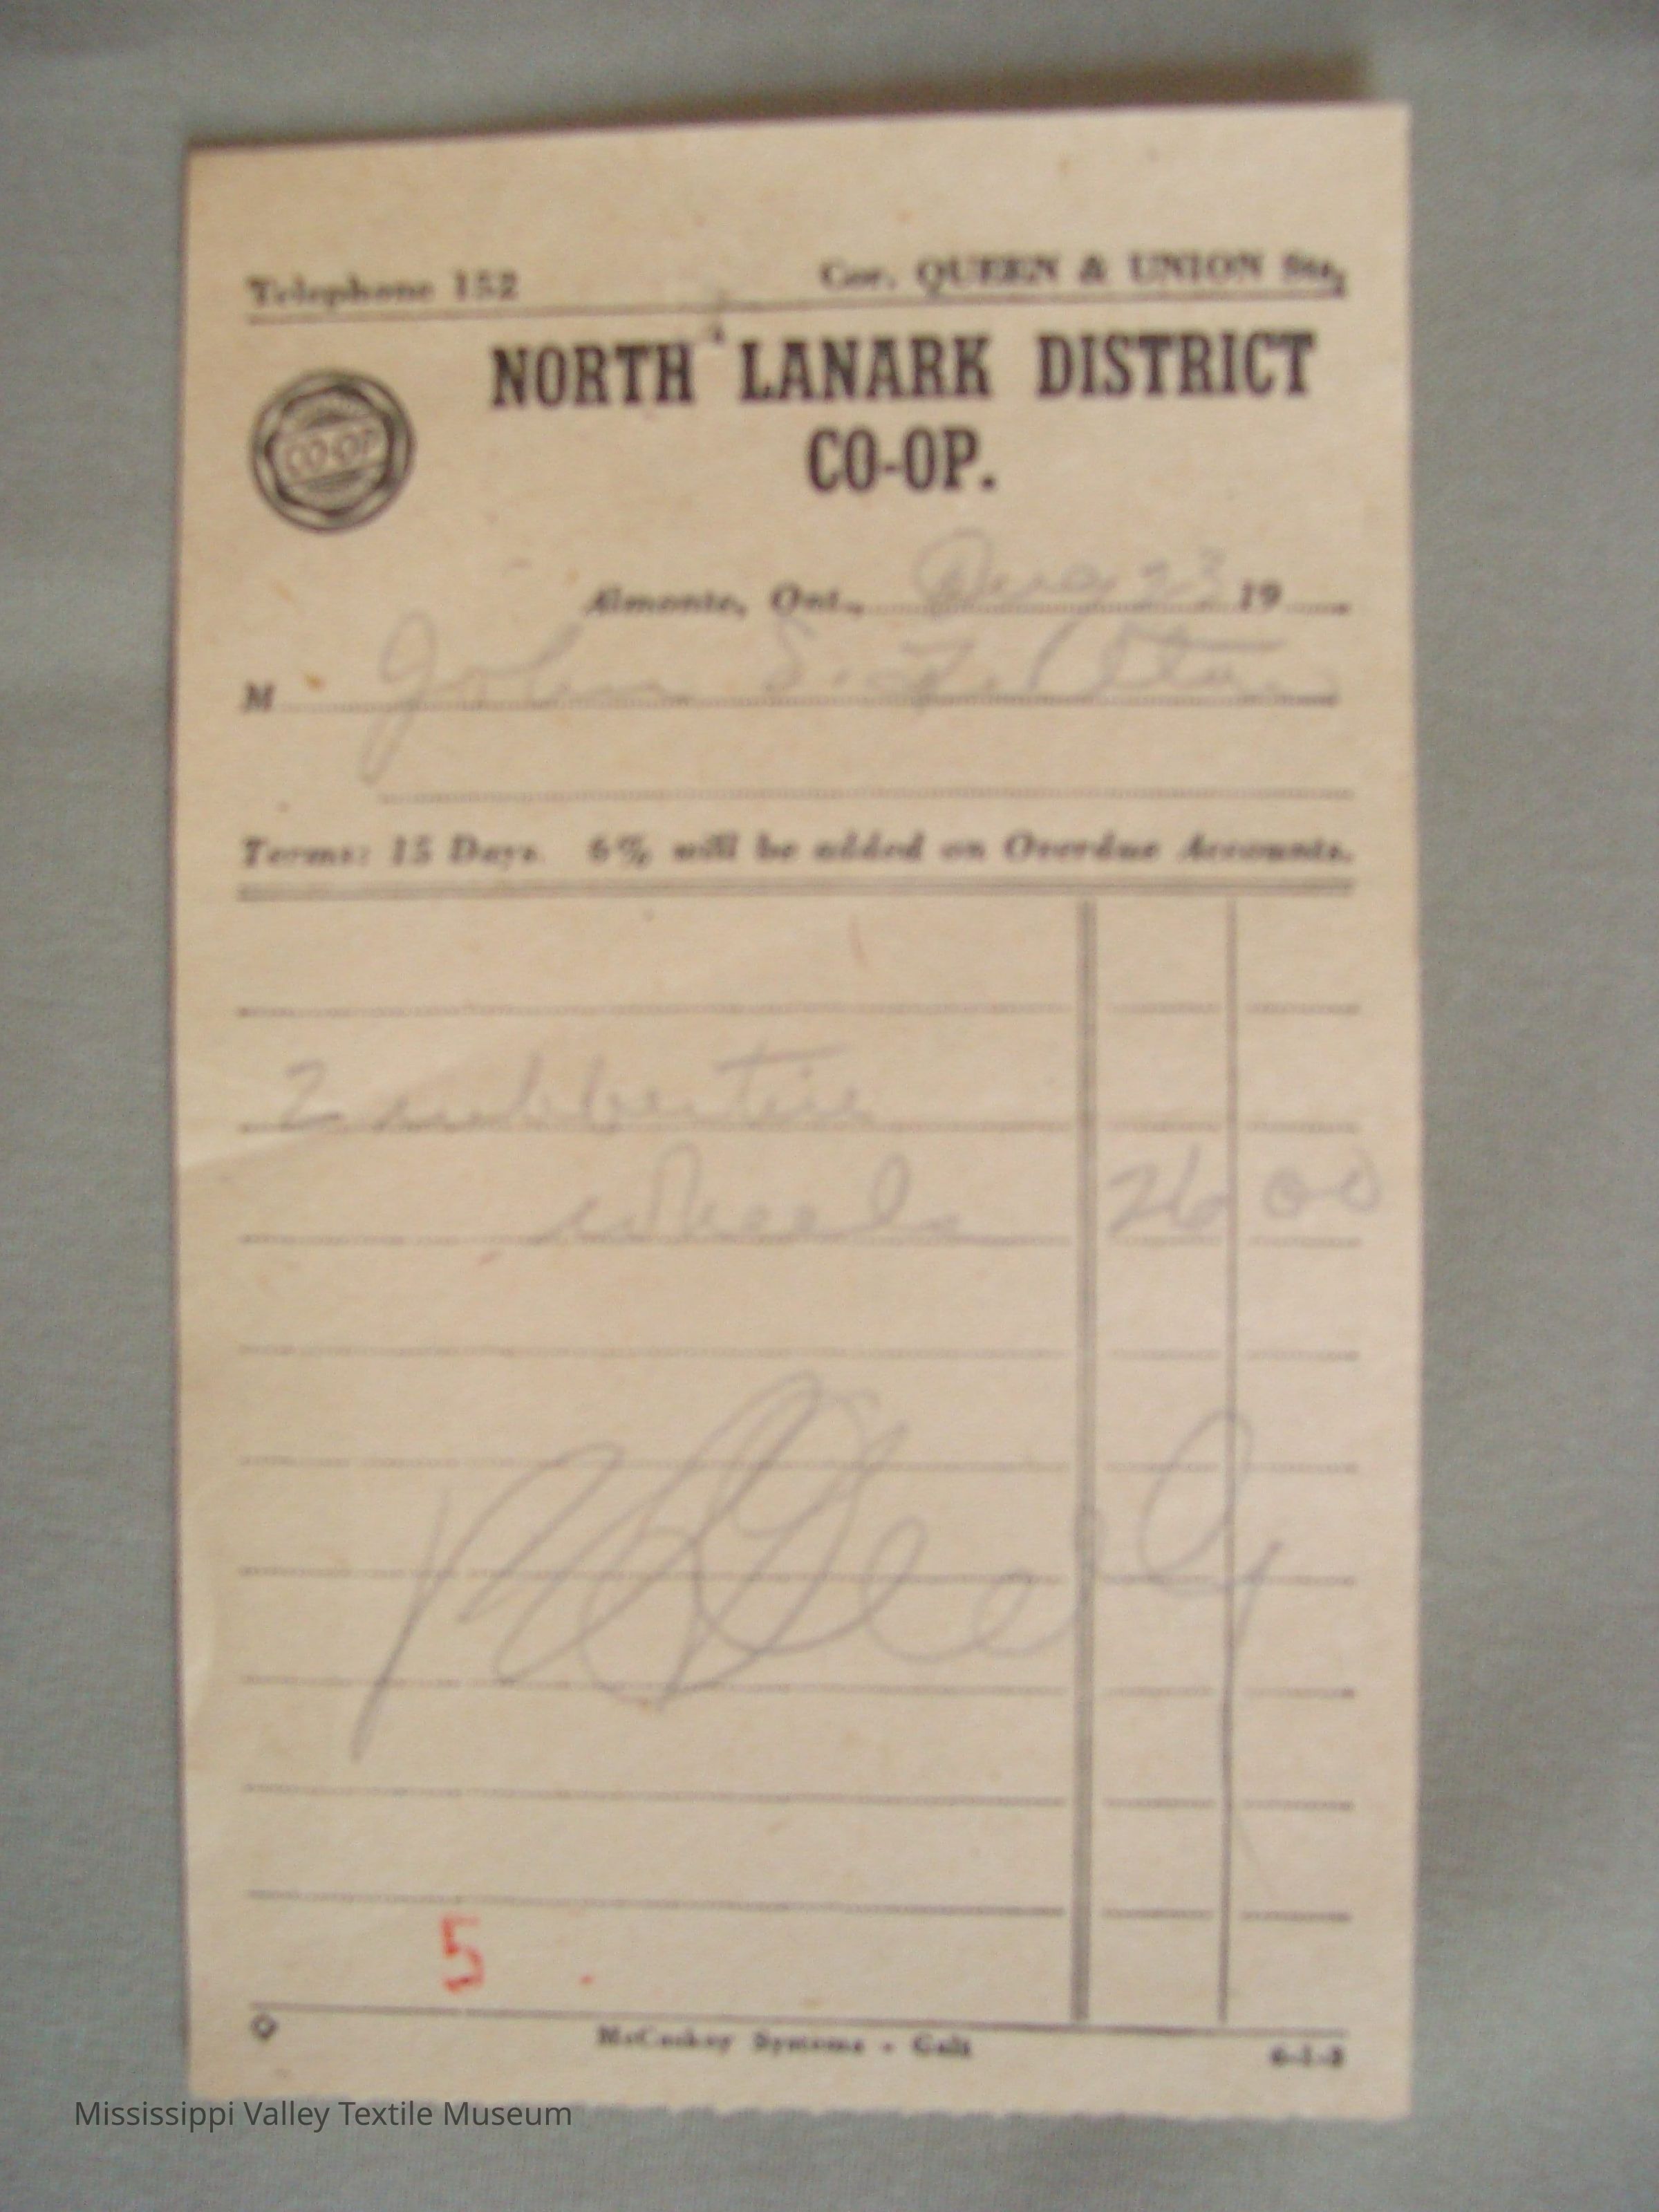 Telephone 152 Cor. QUEEN & UNION Sts,
NORTH LANARK DISTRICT
CO-OP.
CO-OP
Almonte, Ont., Aug 23 19
M John S.
Terms: 15 Days. 6% will be added on Overdue Accounts.
2 rubber tire
wheels 26 00
5
McCaskey Systems - Galt 6-1-8
Mississippi Valley Textile Museum